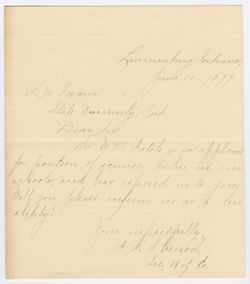 Lawrenceburg, Indiana,
June 12 1899.
Dr. Swain,
State University, Ind.
Dear Sir:
Mr. W. D. Gatch is an applicant
for position of science teacher in our
schools, and has referred us to you.
Will you please inform us as to his
ability?
Yours respectfully,
Sec. B of E.